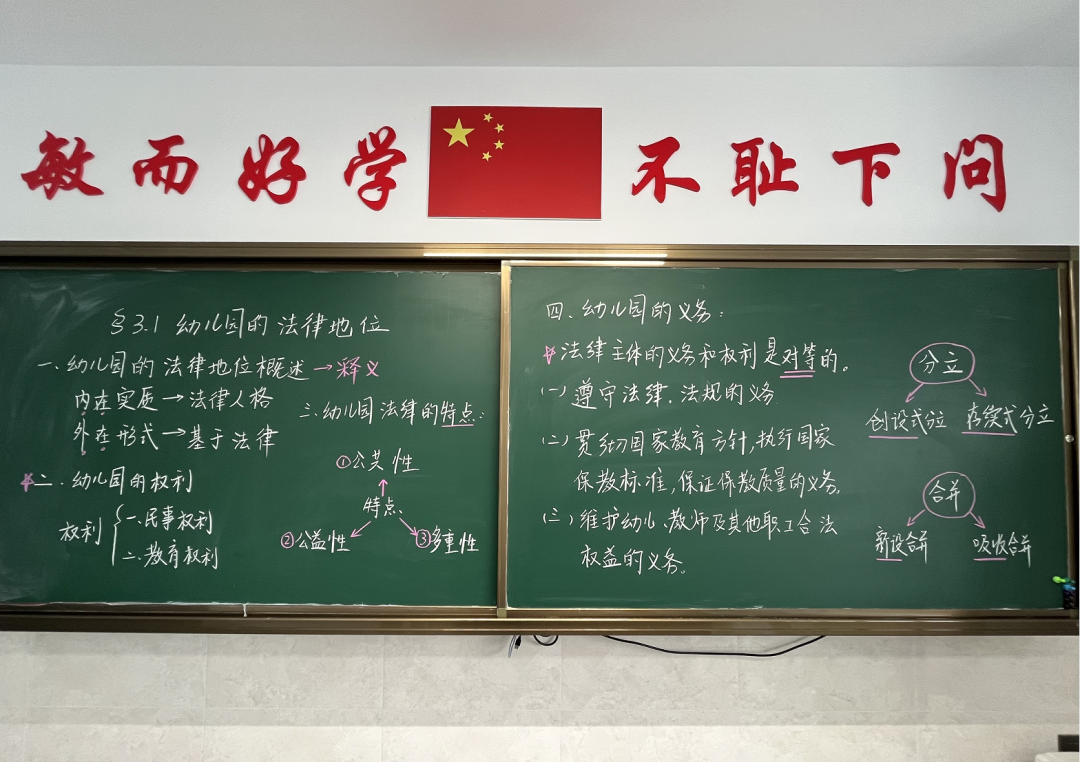 敏而好学 不耻下问
§3.1 幼儿园的法律地位
一、幼儿园的法律地位概述→释义
内在实质→法律人格
外在形式→基于法律
二、幼儿园的权利
权利
一、民事权利
二、教育权利
三、幼儿园法律的特点：
①公共性
特点、
②公益性
③多重性
四、幼儿园的义务：
法律主体的义务和权利是对等的。
(一)遵守法律、法规的义务
(二)贯彻国家教育方针,执行国家
保教标准,保证保教质量的义务。
(三)维护幼儿、教师及其他职工合法
权益的义务。
分立
创设式分立
存续式分立
合并
新设合并
吸收合并